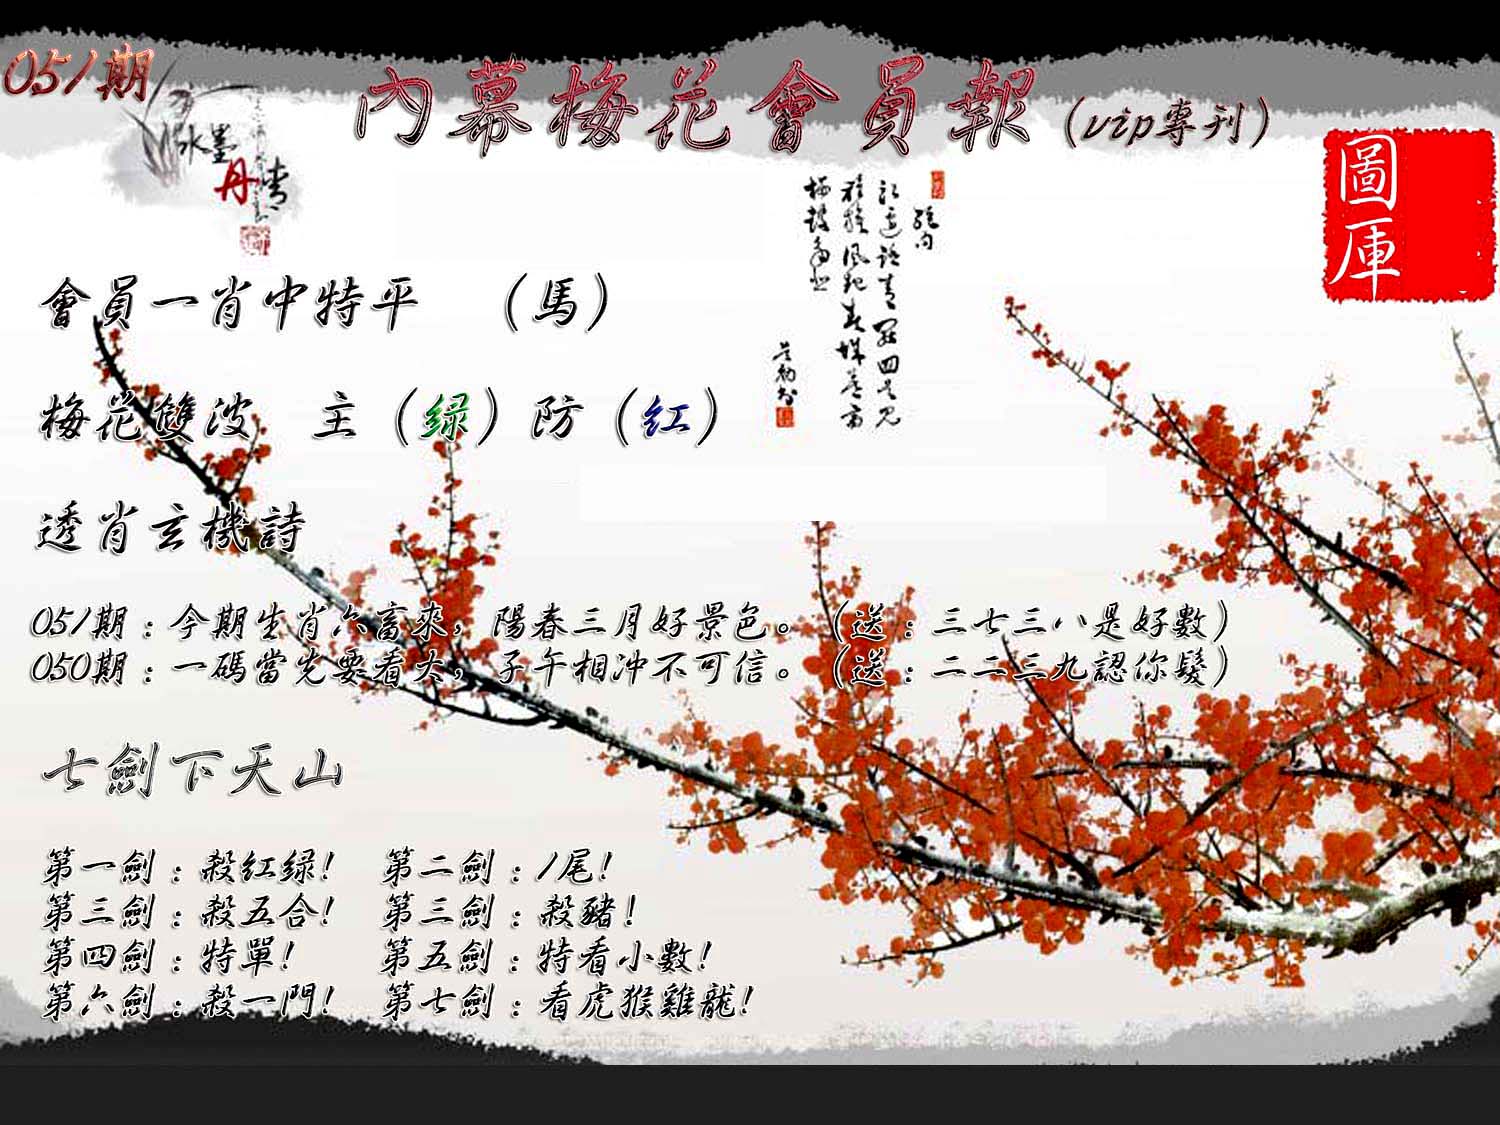 051期
內幕梅花會員報（vip專刊）
水墨
丹青
圖庫
會員一肖中特平　（馬）
梅花雙波　主（绿）防（红）
透肖玄機詩
051期：今期生肖六畜來，陽春三月好景色。（送：三七三八是好數）
050期：一碼當先要看大，子午相沖不可信。（送：二二三九認你髮）
七劍下天山
第一劍：殺红绿！　第二劍：1尾！
第三劍：殺五合！　第三劍：殺豬！
第四劍：特單！　第五劍：特看小數！
第六劍：殺一門！　第七劍：看虎猴雞龍！